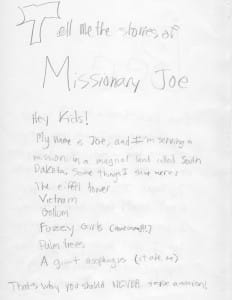 Tell me the stories of
Missionary Joe
Hey Kids!
My name is Joe, and I'm serving a
mission in a magical land called South
Dakota. Some things I saw were:
The eiffel tower
Vietnam
Gollum
Fuzzy Girls (awesome!!!)
Palm trees
A giant asophagus (it ate me)
That's why you should NEVER serve a mission!